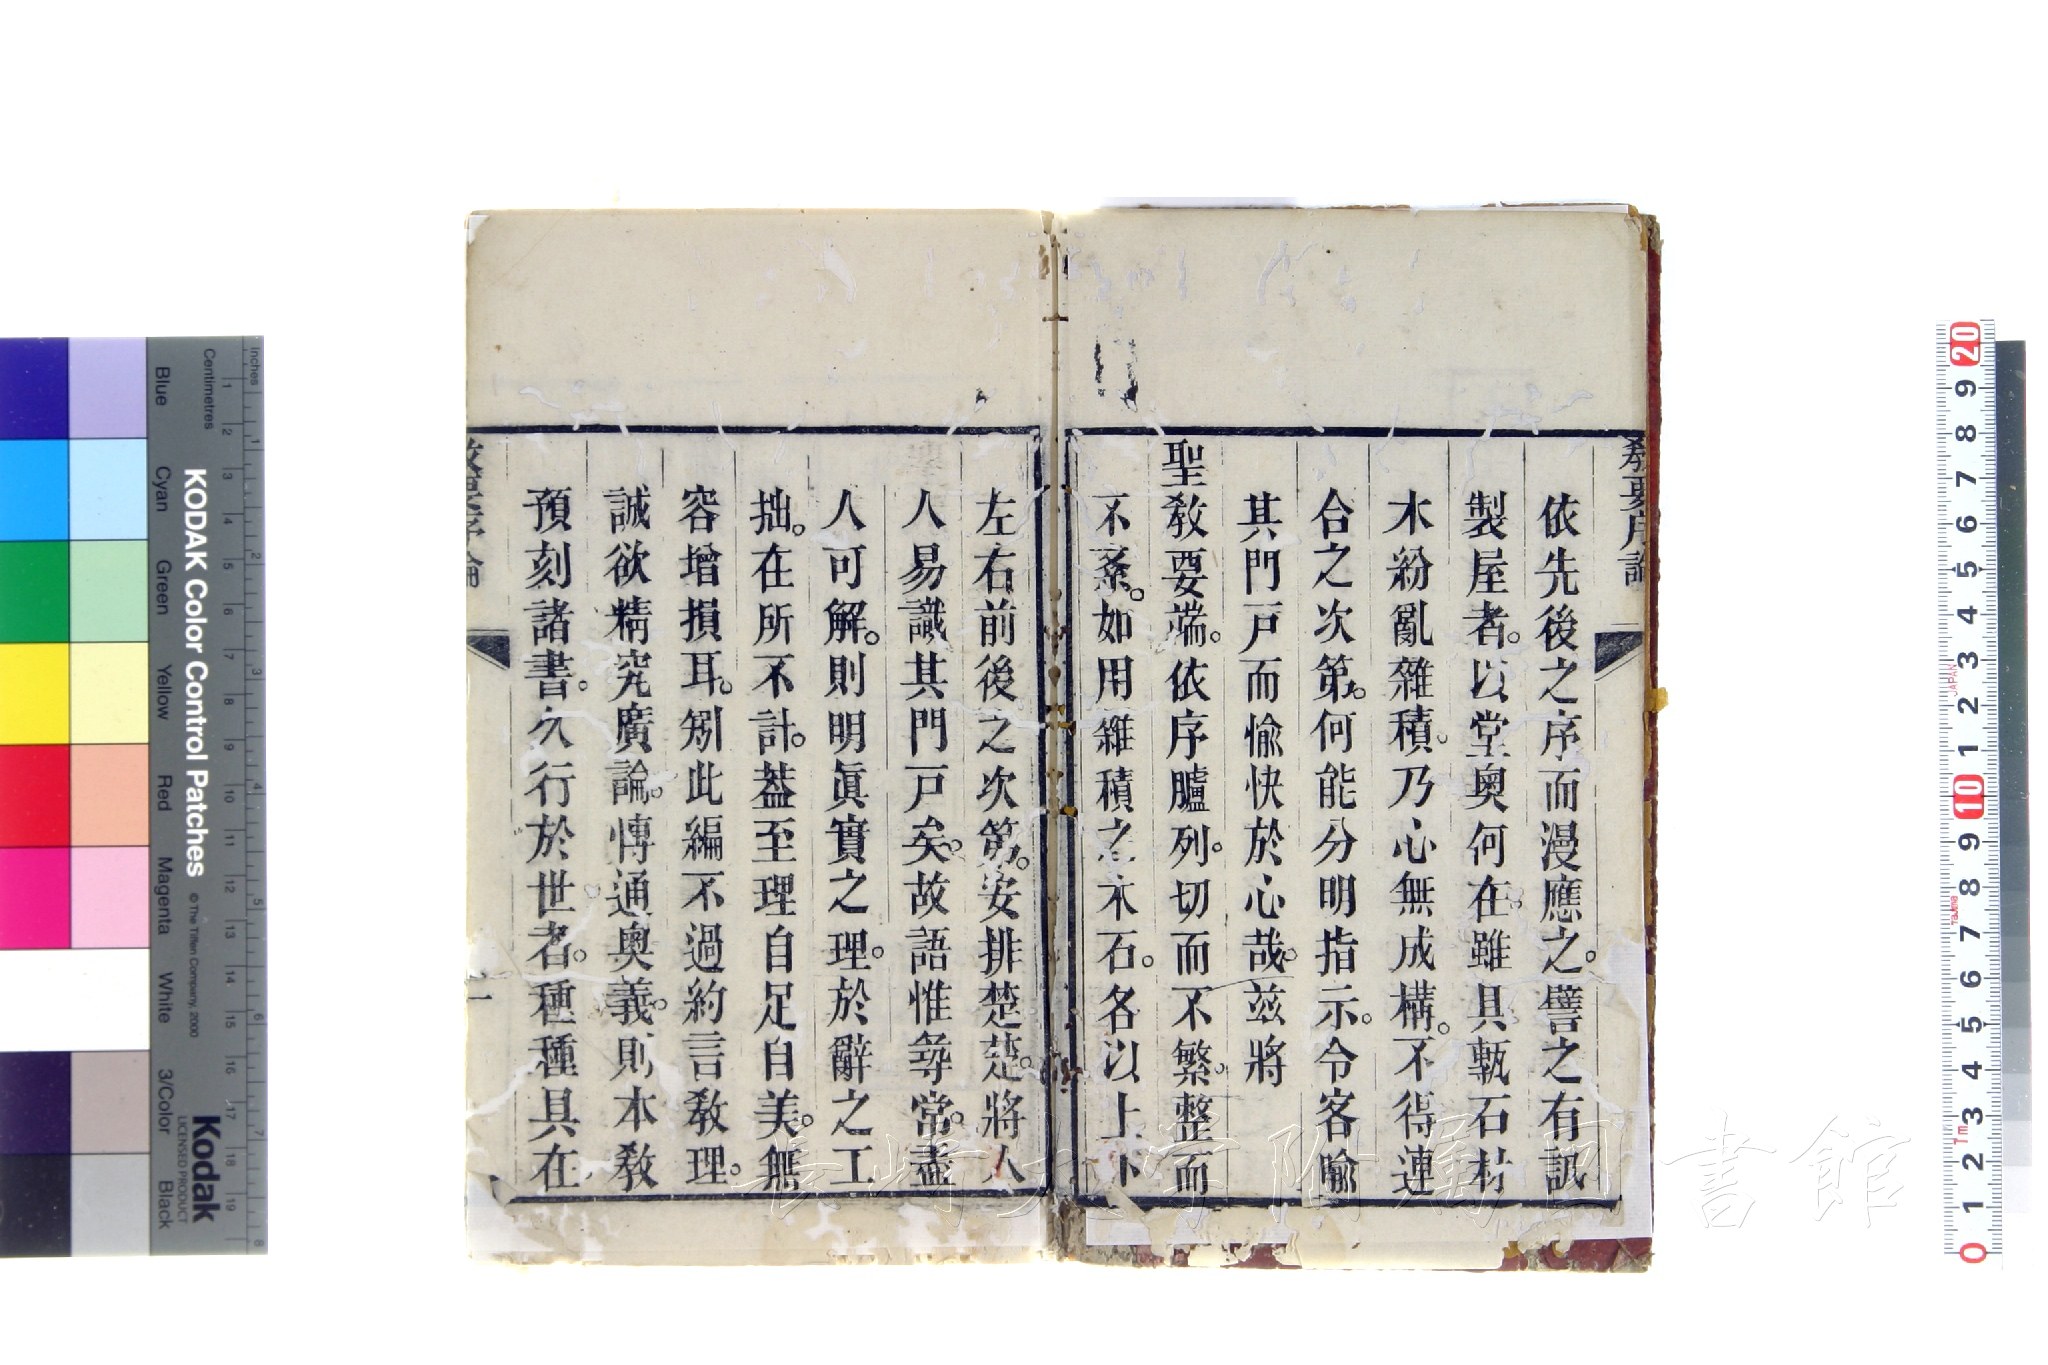 教要序論
依先後之序而漫應之。譬之有詔
製屋者。以堂奥何在。雖具甎石材
木紛亂雜積。乃心無成構。不得連
合之次第。何能分明指示。令客喻
其門戸而愉快於心哉。兹將
聖教要端。依序臚列。切而不繁。整而
不紊。如用雜積之木石。各以上下
左右前後之次第。安排楚楚。將人
人易識其門戸矣。故語惟尋常。盡
人可解。則明眞實之理。於辭之工
拙。在所不計。葢至理自足自美。無
容增損耳。矧此編不過約言教理。
誠欲精究廣論。慱通奥義。則本教
預刻諸書。久行於世者。種種具在
教要序論
一
長崎大学附属図書館
KODAK Color Control Patches
© The Tiffen Company, 2000
Kodak
LICENSED PRODUCT
Inches
Centimetres
Blue
Cyan
Green
Yellow
Red
Magenta
White
3/Color
Black
JAPAN
Tajima